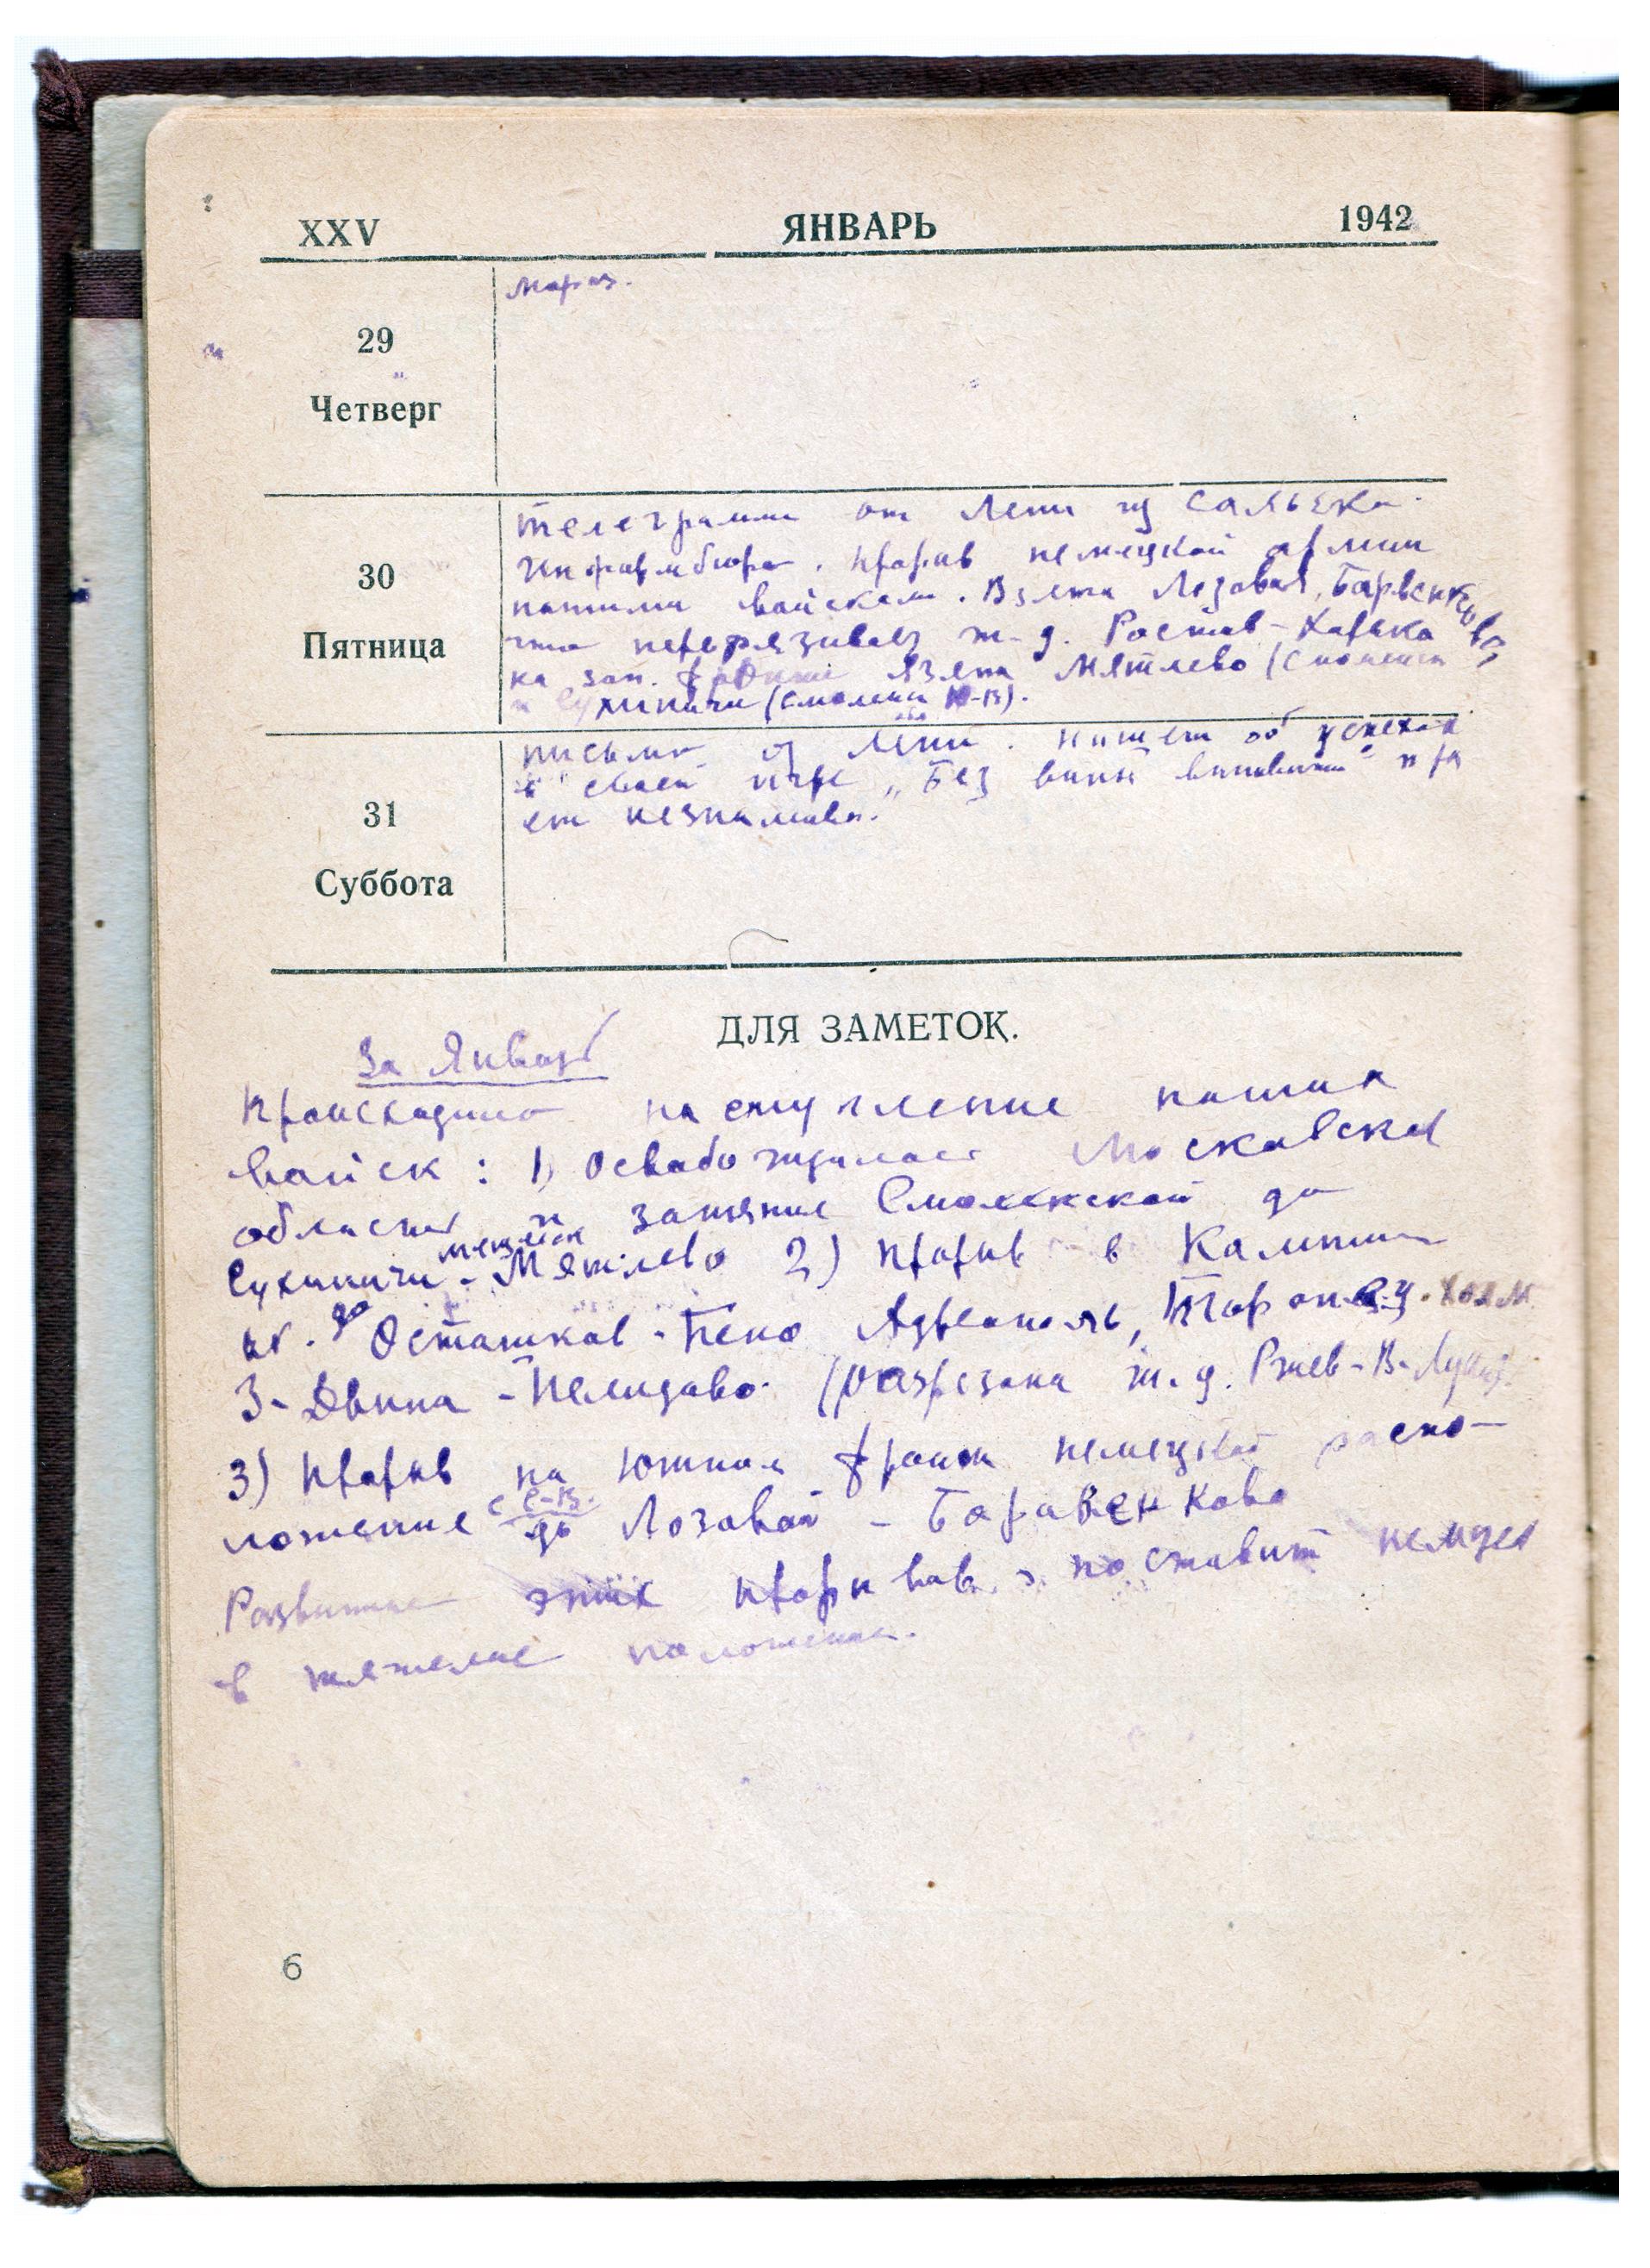 XXV ЯНВАРЬ 1942
Мороз.
29
Четверг
Телеграмма от Лени из Сальска.
Информбюро. Прорыв немецкой армии
30
нашими войсками. Взята Лозовая, Барвенково,
что перерязывает ж-д. Ростов-Харько
Пятница
на зап. фронте взята Мятлево (Смоленск
и Сухиничи (Смоленск Ю-В).
письмо от Лени. пишет об успехах
в своей игре „Без вины виноватые" игра
31
ет незнамова.
Суббота
ДЛЯ ЗАМЕТОК.
За Январь
Происходило наступление наших
войск: 1) Освобождалась Московская
область и занятие Смоленской до
Сухиничи - Мятлево 2) прорыв в Калинин
до Осташков - Пено Адреаполь, Торопец. Холм.
З-Двина - Нелидово (разрезана ж.д. Ржев-В-Луки).
3) прорыв на Южном фронт немецкой распо-
ложение с С-В. до Лозовой - Баравенково
Развитие этих прорывов поставит немцев
в тяжелые положение.
6